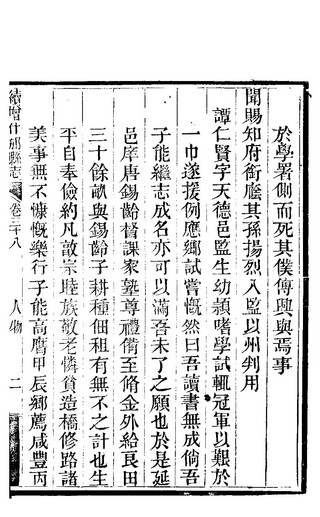 於學署側而死其僕傅興與焉事
聞賜知府銜廕其孫揚烈入監以州判用
譚仁賢字天德邑監生幼穎嗜學試輒冠軍以艱於
一巾遂援例應鄉試嘗慨然曰吾讀書無成倘吾
子能繼志成名亦可以滿吾未了之願也於是延
邑庠唐錫齡督課家塾尊禮備至脩金外給良田
三十餘畝與錫齡子耕種佃租有無不之計也生
平自奉儉約凡敦宗睦族敬老憐貧造橋修路諸
美事無不慷慨樂行子能高膺甲辰鄉薦咸豐丙
續增什邡縣志
卷三十八
人物
二